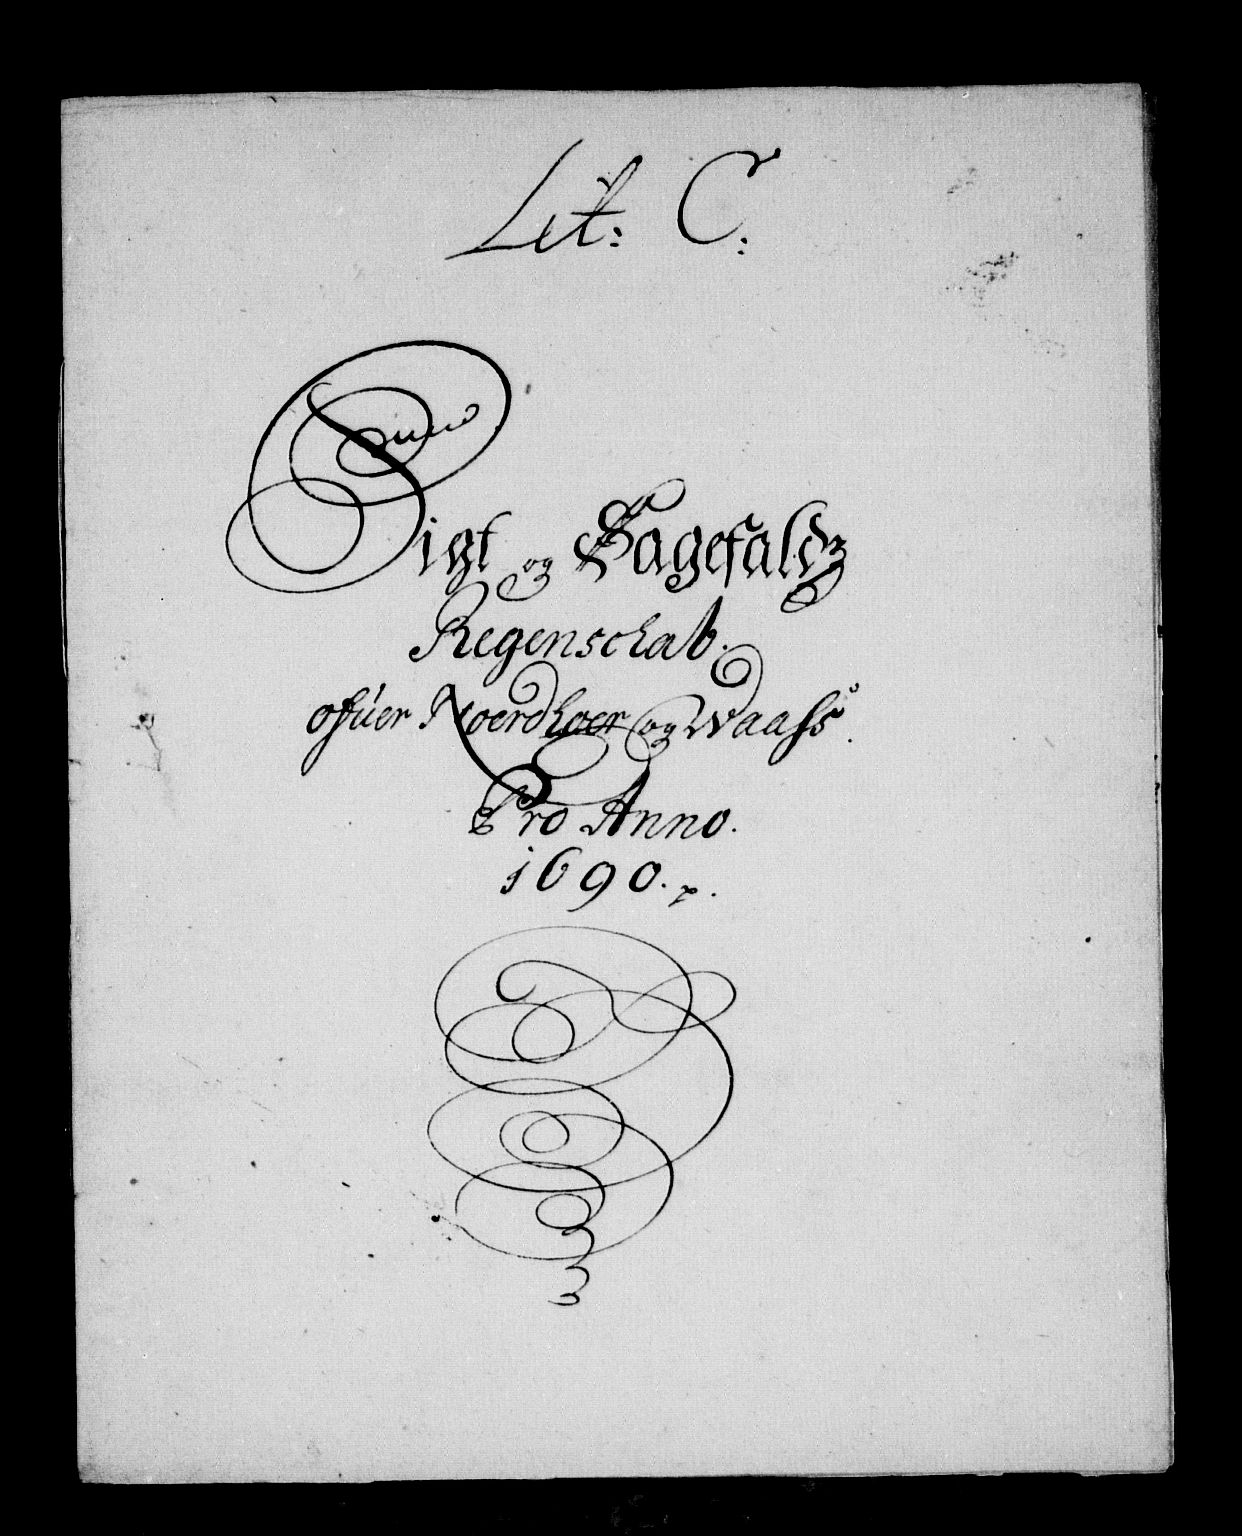 Lit: C:
Sigt og Sagefaldz
Regenschab.
ofuer Noerdhoer og Waass.
Pro Anno.
1690.